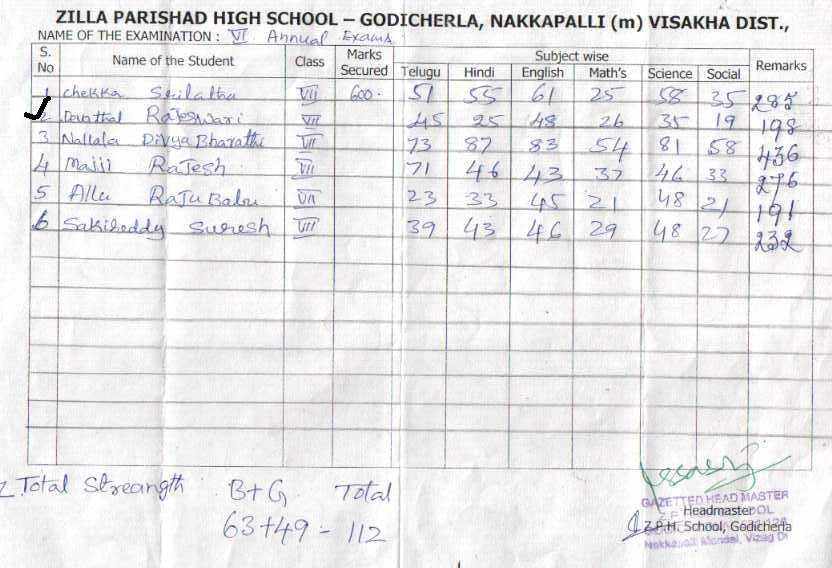 ZILLA PARISHAD HIGH SCHOOL – GODICHERLA, NAKKAPALLI (m) VISAKHA DIST.,
NAME OF THE EXAMINATION : VI Annual Exams.
S. No Name of the Student Class Marks Secured Subject wise Remarks
Telugu Hindi English Math's Science Social
1 chekka Srilatha VII 600. 51 55 61 25 58 35 285
2 Rajeswari VII 45 25 48 26 35 19 198
3 Nallala Divya Bharathi VII 73 87 83 54 81 58 436
4 Majji Rajesh VII 71 46 43 37 46 33 276
5 Allu Raju Babu VII 23 33 45 21 48 21 191
6 Sakireddy Suresh VII 39 43 46 29 48 27 232
2 Total Streangth B+G Total
63+49 = 112
GAZETTED HEAD MASTER
Headmaster
Z.P.H. School, Godicherla
Nakkapalli Mandal, Vizag Dt